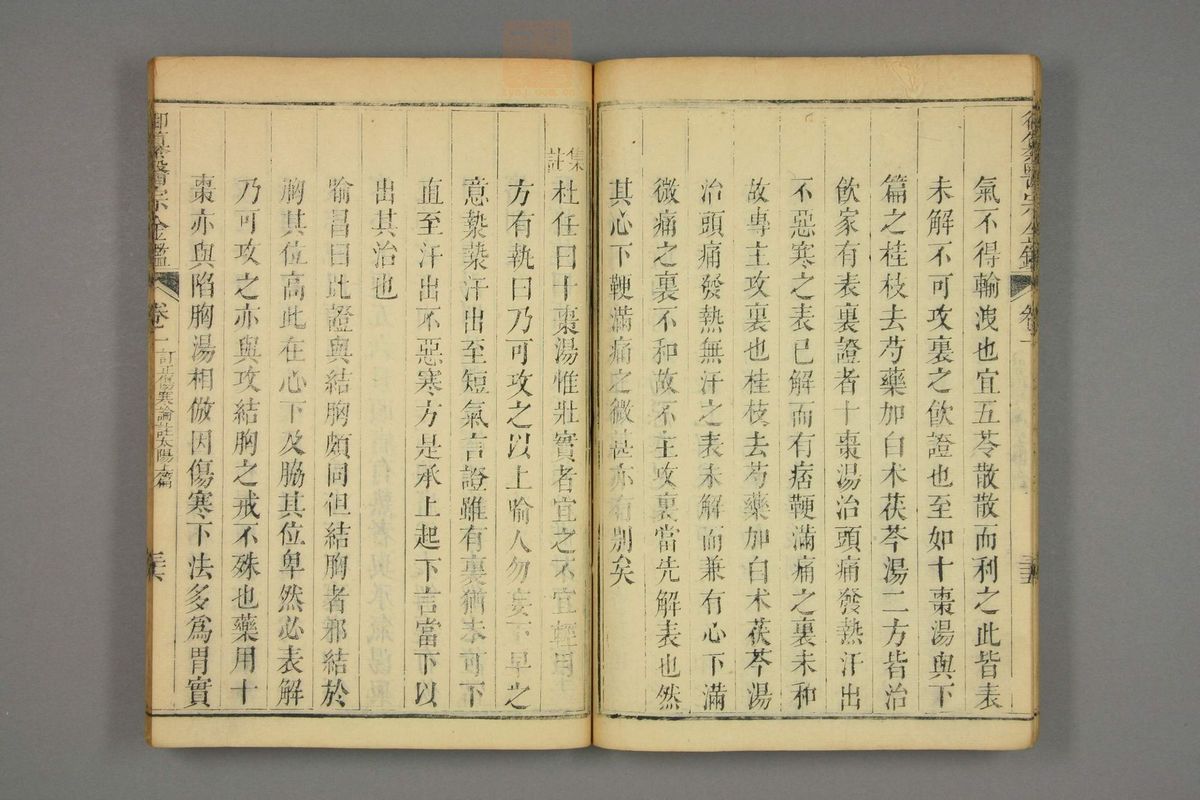 氣不得輸洩也宜五苓散散而利之此皆表
未解不可攻裏之飲證也至如十棗湯與下
篇之桂枝去芍藥加白朮茯苓湯二方皆治
飲家有表裏證者十棗湯治頭痛發熱汗出
不惡寒之表已解而有痞鞕滿痛之裏未和
故專主攻裏也桂枝去芍藥加白朮茯苓湯
治頭痛發熱無汗之表未解而兼有心下滿
微痛之裏不和故不主攻裏當先解表也然
其心下鞕滿痛之微甚亦有別矣
集註
杜任曰十棗湯惟壯實者宜之不宜輕用
方有執曰乃可攻之以上喻人勿妄下早之
意漐漐汗出至短氣言證雖有裏猶未可下
直至汗出不惡寒方是承上起下言當下以
出其治也
喻昌曰此證與結胸頗同但結胸者邪結於
胸其位高此在心下及脇其位卑然必表解
乃可攻之亦與攻結胸之戒不殊也藥用十
棗亦與陷胸湯相倣因傷寒下法多爲胃實
御纂醫宗金鑑
卷一
訂正傷寒論註太陽上篇
三十六